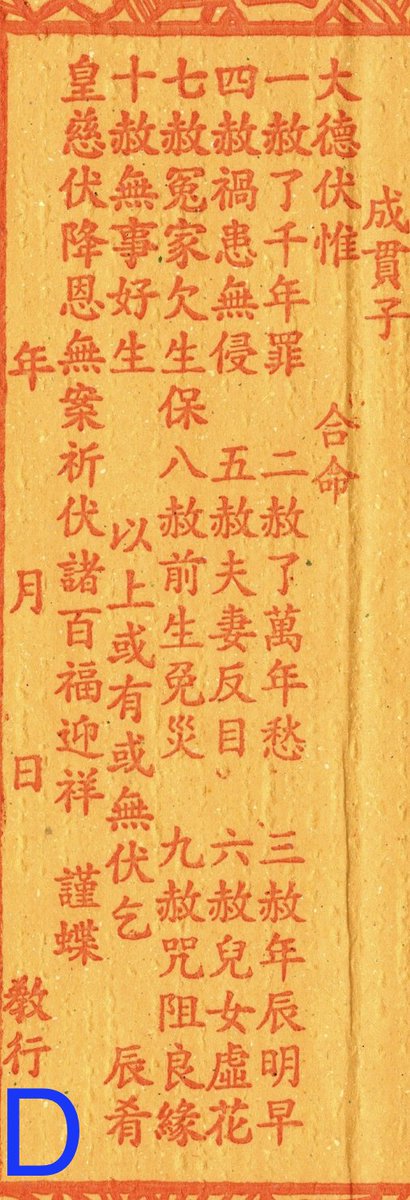 成貫子
大德伏惟 合命
一赦了千年罪 二赦了萬年愁 三赦年辰明早
四赦禍患無侵 五赦夫妻反目 六赦兒女虛花
七赦冤家欠生保 八赦前生免災 九赦咒阻良緣
十赦無事好生 以上或有或無伏乞 辰肴
皇慈伏降恩無案祈伏諸百福迎祥 謹蝶
年 月 日 教行
D